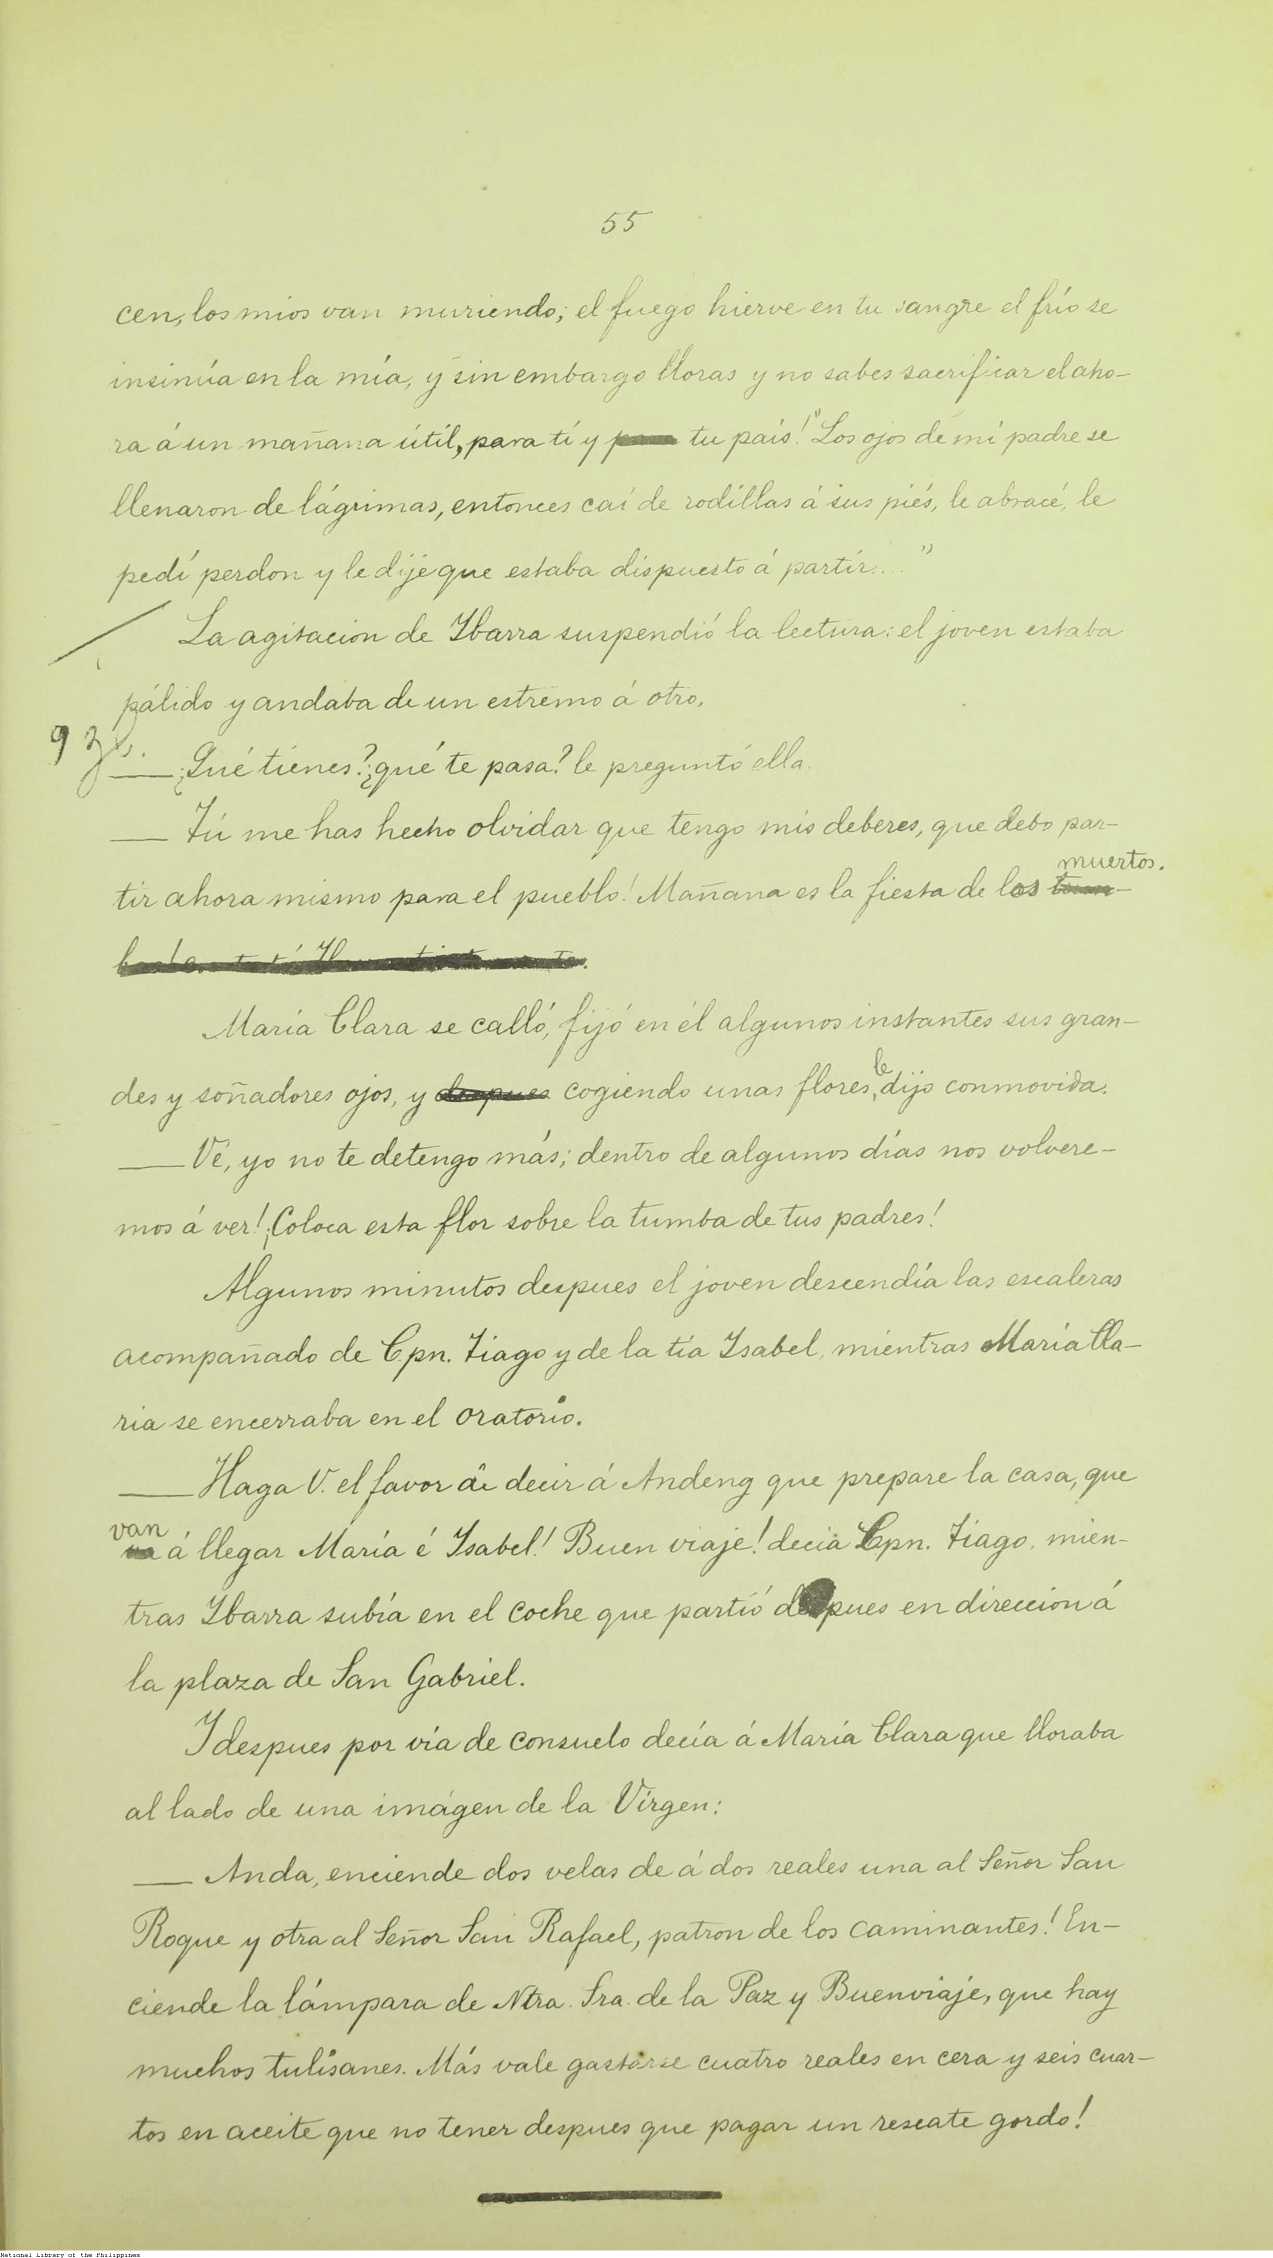 55
cen, los mios van muriendo; el fuego hierve en tu sangre el frío se
insinúa en la mía, y sin embargo lloras y no sabes sacrificar el aho-
ra á un mañana útil, para tí y para tu país!" Los ojos de mi padre se
llenaron de lágrimas, entonces caí de rodillas á sus piés, le abracé, le
pedí perdon y le dije que estaba dispuesto á partir...."
La agitacion de Ibarra suspendió la lectura: el joven estaba
pálido y andaba de un estremo á otro.
—¿Qué tienes? ¿qué te pasa? le preguntó ella.
— Tú me has hecho olvidar que tengo mis deberes, que debo par-
muertos.
tir ahora mismo para el pueblo! Mañana es la fiesta de los
María Clara se calló, fijó en él algunos instantes sus gran-
le
des y soñadores ojos, y despues cogiendo unas flores, dijo conmovida.
— Vé, yo no te detengo más; dentro de algunos días nos volvere-
mos á ver! ¡Coloca esta flor sobre la tumba de tus padres!
Algunos minutos despues el joven descendía las escaleras
acompañado de Cpn. Tiago y de la tía Isabel, mientras María Cla-
ria se encerraba en el oratorio.
— Haga V. el favor de decir á Andeng que prepare la casa, que
van
va á llegar María é Isabel! Buen viaje! decía Cpn. Tiago, mien-
tras Ibarra subía en el coche que partió despues en direccion á
la plaza de San Gabriel.
Y despues por vía de consuelo decía á María Clara que lloraba
al lado de una imágen de la Vírgen:
— Anda, enciende dos velas de á dos reales una al Señor San
Roque y otra al Señor San Rafael, patron de los caminantes! En-
ciende la lámpara de Ntra. Sra. de la Paz y Buenviaje, que hay
muchos tulisanes. Más vale gastarse cuatro reales en cera y seis cuar-
tos en aceite que no tener despues que pagar un rescate gordo!
National Library of the Philippines